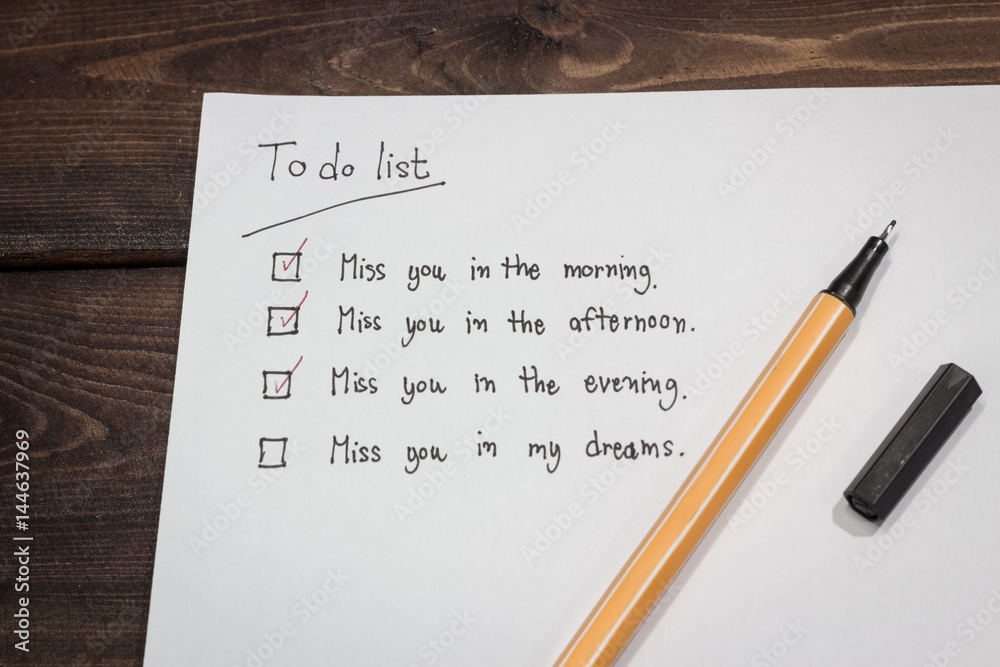 To do list
Miss you in the morning.
Miss you in the afternoon.
Miss you in the evening.
Miss you in my dreams.
Adobe Stock | #144637969